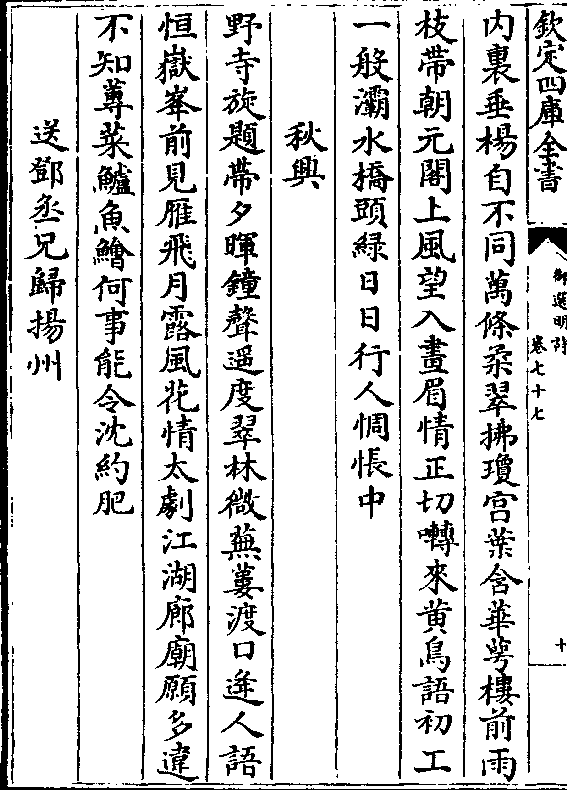 欽定四庫全書
御選明詩
卷七十七
十
内裏垂楊自不同萬條柔翠拂瓊宫葉含華萼樓前雨
枝帶朝元閣上風望入畫眉情正切囀來黄鳥語初工
一般灞水橋頭緑日日行人惆悵中
秋興
野寺旋題帶夕暉鐘聲遥度翠林微蕪蔞渡口逢人語
恒嶽峯前見雁飛月露風花情太劇江湖廊廟願多違
不知蓴菜鱸魚鱠何事能令沈約肥
送鄧丞兄歸揚州